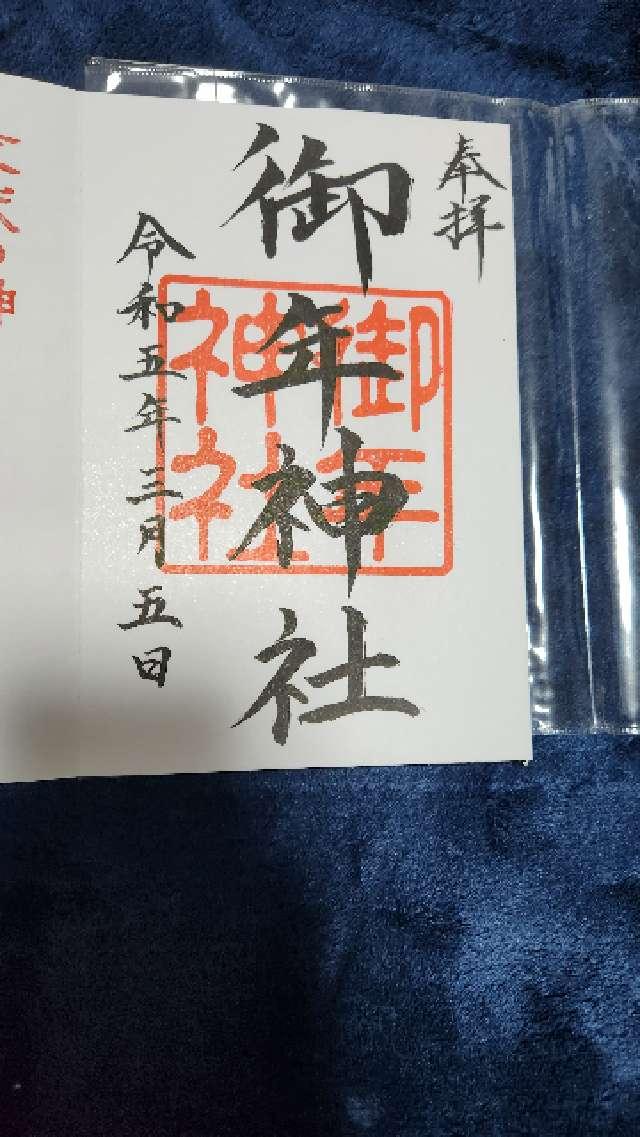 奉拝
御年神社
御年
神社
令和五年三月五日